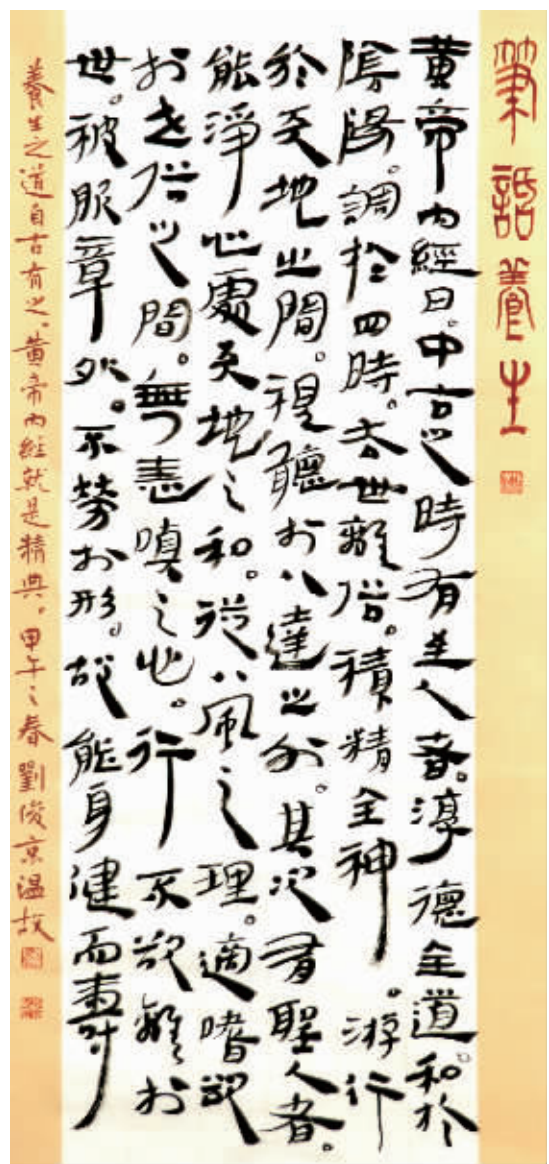 筆話養生
黃帝內經曰。中古之時有至人者。淳德全道。和於
陰陽。調於四時。去世離俗。積精全神。游行
於天地之間。視聽於八達之外。其次有聖人者。
能淨心處天地之和。從八風之理。適嗜欲
於世俗之間。無恚嗔之心。行不欲離於
世。被服章外。不勞於形。故能身健而壽
養生之道自古有之。黃帝內經就是精典。甲午之春劉俊京温故